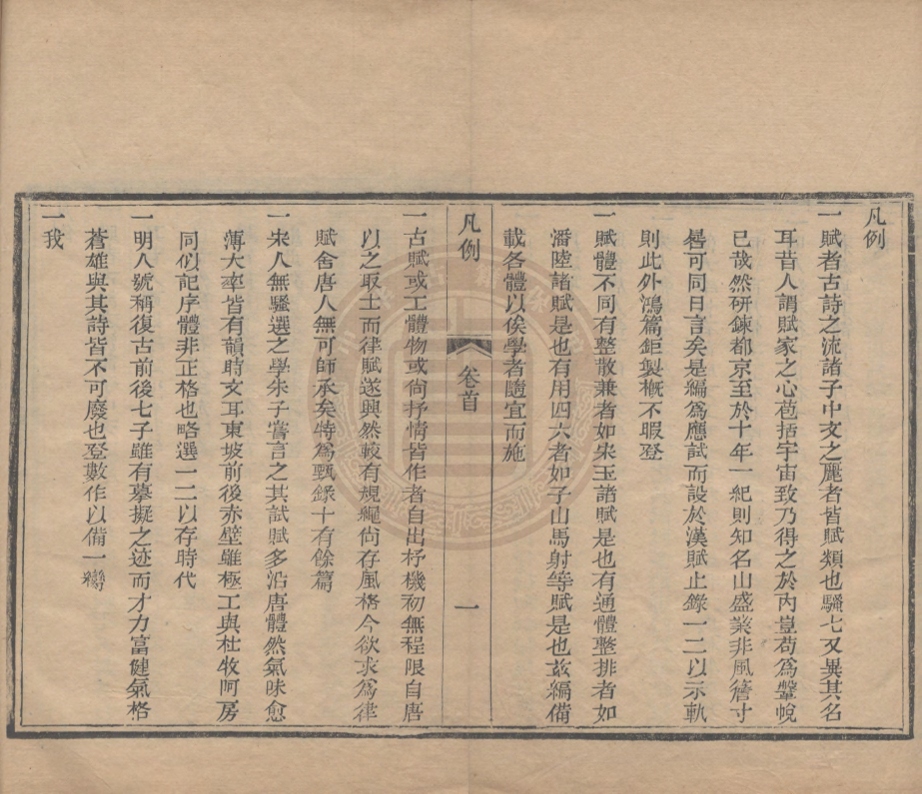 凡例
一賦者古詩之流諸子中文之麗者皆賦類也騷七又異其名
耳昔人謂賦家之心苞括宇宙致乃得之於內豈苟為鞶帨
已哉然研鍊都京至於十年一紀則知名山盛業非風簷寸
晷可同日言矣是編為應試而設於漢賦止錄一二以示軌
則此外鴻篇鉅製概不暇登
一賦體不同有整散兼者如宋玉諸賦是也有通體整排者如
潘陸諸賦是也有用四六者如子山馬射等賦是也茲編備
載各體以俟學者隨宜而施
凡例 卷首 一
一古賦或工體物或尚抒情皆作者自出杼機初無程限自唐
以之取士而律賦遂興然較有規繩尚存風格今欲求為律
賦舍唐人無可師承矣特為甄錄十有餘篇
一宋人無騷選之學朱子嘗言之其試賦多沿唐體然氣味愈
薄大率皆有韻時文耳東坡前後赤壁雖極工與杜牧阿房
同似記序體非正格也略選一二以存時代
一明人號稱復古前後七子雖有摹擬之迹而才力富健氣格
蒼雄與其詩皆不可廢也登數作以備一臠
一我